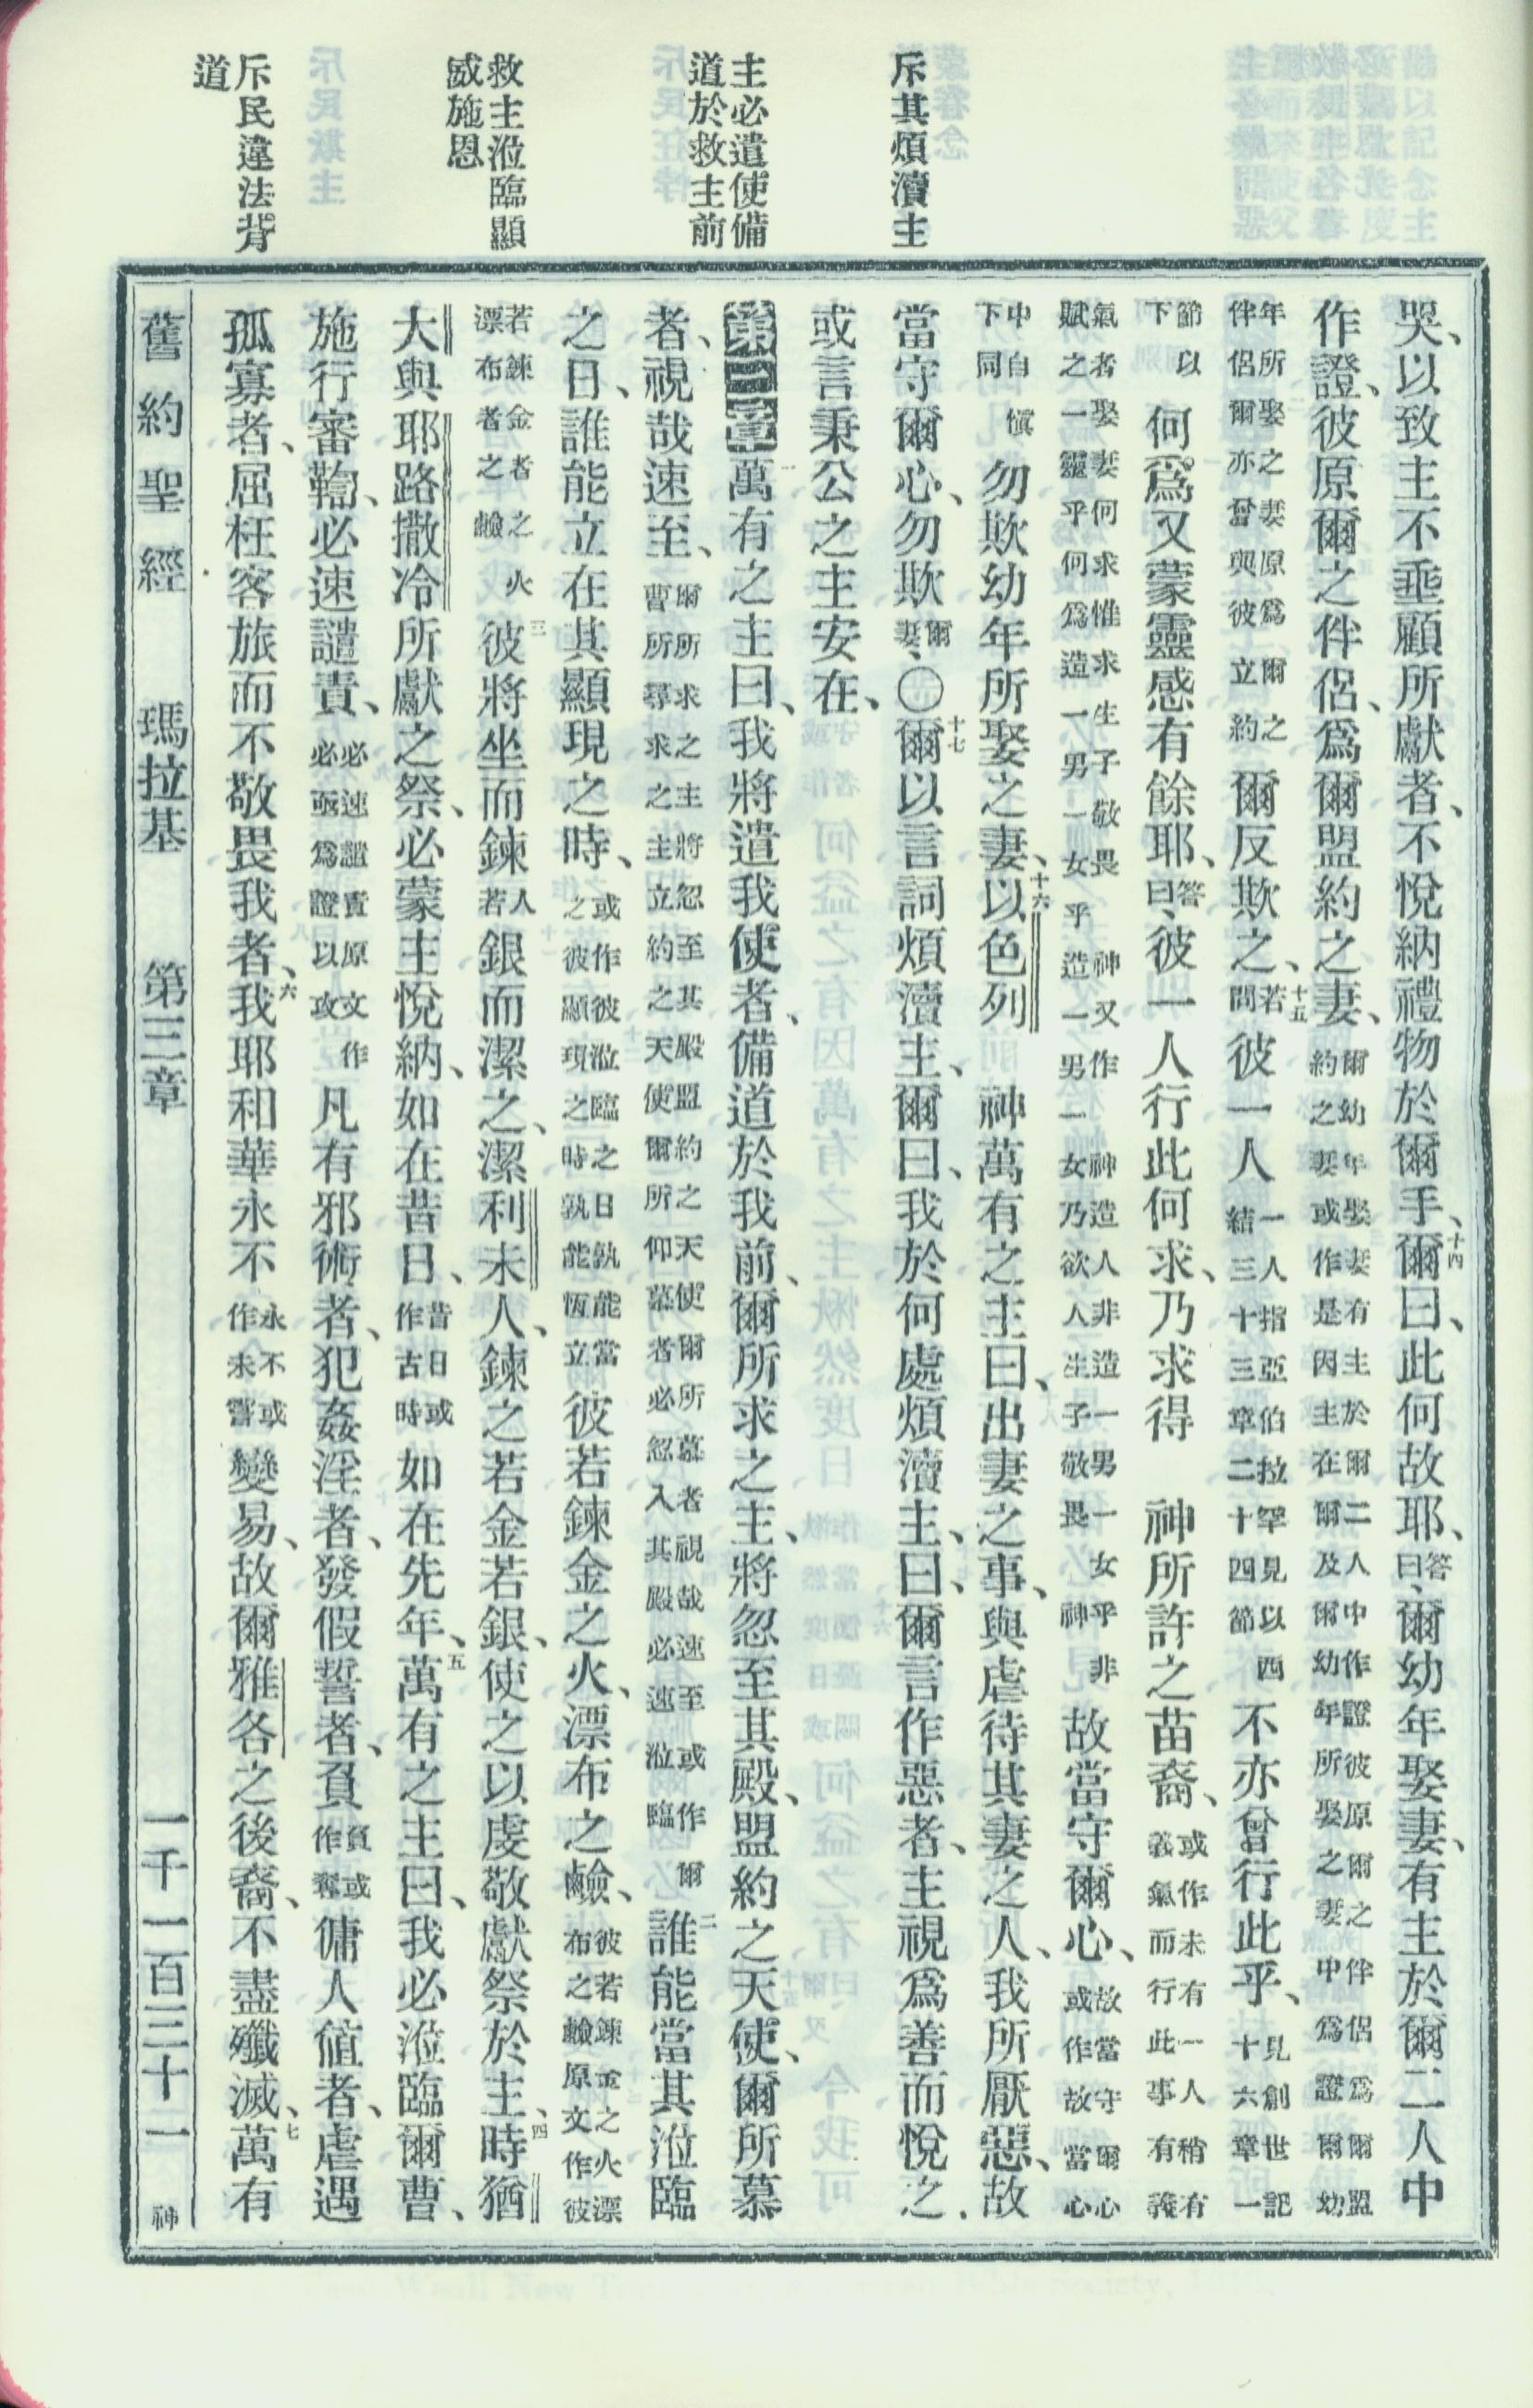 斥其煩瀆主
主必遣使備
道於救主前
救主涖臨顯
威施恩
斥民違法背
道
哭、以致主不垂顧所獻者、不悅納禮物於爾手、十四爾曰、此何故耶、答曰、爾幼年娶妻、有主於爾二人中
作證、彼原爾之伴侶、爲爾盟約之妻、爾幼年娶妻有主於爾二人中作證彼原爾之伴侶爲爾盟約之妻或作是因主在爾及爾幼年所娶之妻中爲證爾幼
年所娶之妻原爲爾之伴侶爾亦曾與彼立約爾反欺之、十五若問彼一人一人指亞伯拉罕見以西結三十三章二十四節不亦曾行此乎、見創世記十六章一
節以下何爲又蒙靈感有餘耶、答曰、彼一人行此何求、乃求得 神所許之苗裔、或作未有一人稍有義氣而行此事有義
氣者娶妻何求惟求生子敬畏 神又作神造人非造一男一女乎非賦之一靈乎何爲造一男一女乎造一男一女乃欲人生子敬畏神故當守爾心、故當守爾心或作故當心
中自愼下同勿欺幼年所娶之妻、十六以色列 神萬有之主曰、出妻之事、與虐待其妻之人、我所厭惡、故
當守爾心、勿欺爾妻、〇十七爾以言詞煩瀆主、爾曰、我於何處煩瀆主、曰、爾言作惡者、主視爲善而悅之、
或言秉公之主安在、
第三章一萬有之主曰、我將遣我使者、備道於我前、爾所求之主、將忽至其殿、盟約之天使、爾所慕
者、視哉速至、爾所求之主將忽至其殿盟約之天使爾所慕者視哉速至或作爾曹所尋求之主立約之天使爾所仰慕者必忽入其殿必速涖臨二誰能當其涖臨
之日、誰能立在其顯現之時、或作彼涖臨之日孰能當之彼顯現之時孰能恆立彼若鍊金之火、漂布之鹼、彼若鍊金之火漂布之鹼原文作彼
若鍊金者之火漂布者之鹼三彼將坐而鍊人若銀而潔之、潔利未人、鍊之若金若銀、使之以虔敬獻祭於主、四時猶
大與耶路撒冷所獻之祭、必蒙主悅納、如在昔日、昔日或作古時如在先年、五萬有之主曰、我必涖臨爾曹、
施行審鞫、必速譴責、必速譴責原文作必亟爲證以攻凡有邪術者、犯姦淫者、發假誓者、負負或作奪傭人値者、虐遇
孤寡者、屈枉客旅而不敬畏我者、六我耶和華永不永不或作未嘗變易、故爾雅各之後裔、不盡殲滅、七萬有
舊約聖經 瑪拉基 第三章 一千一百三十一 神